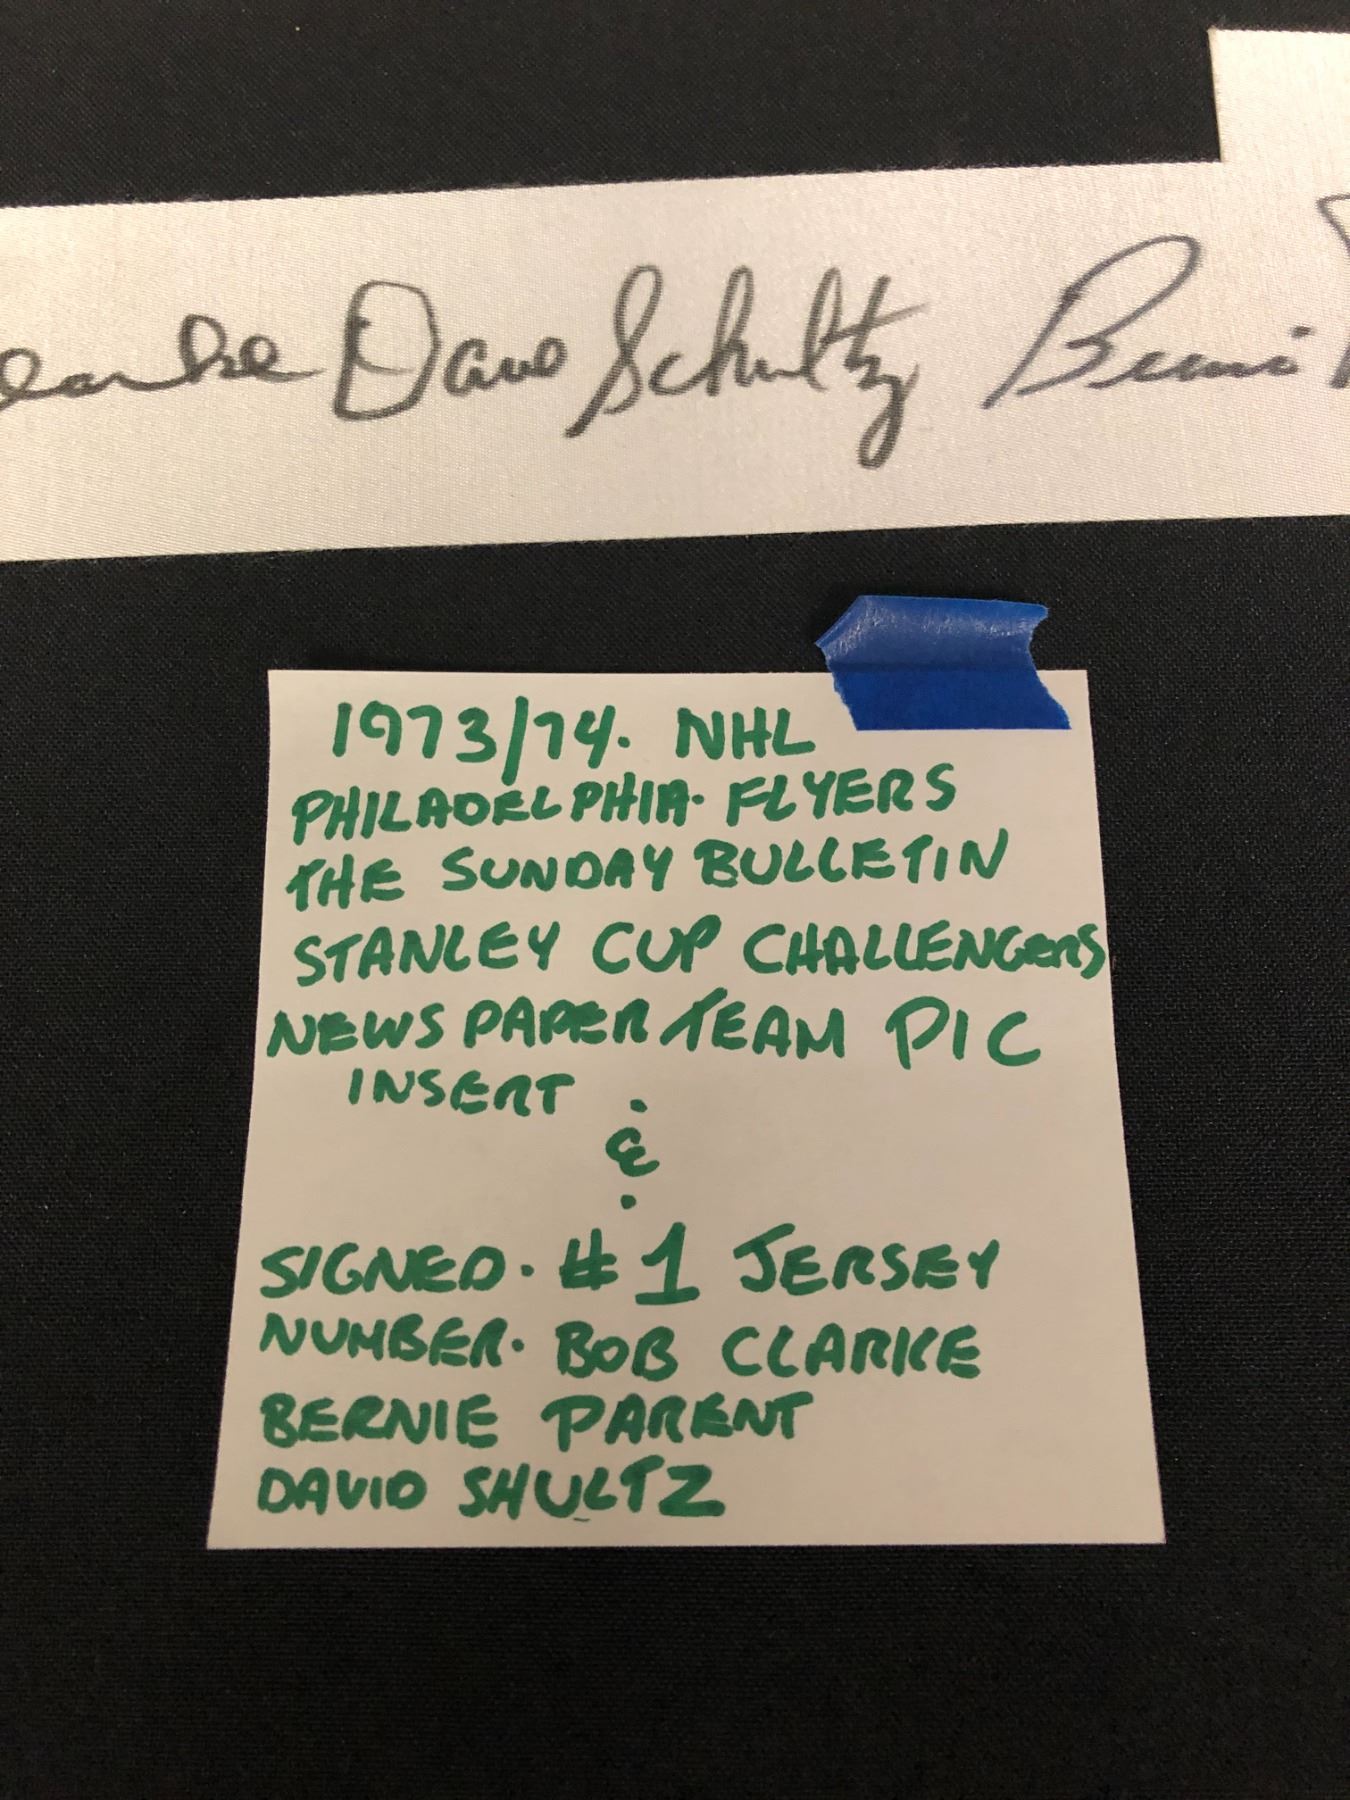 earke Dave Schultz Bernie
1973/74. NHL
PHILADELPHIA. FLYERS
THE SUNDAY BULLETIN
STANLEY CUP CHALLENGERS
NEWSPAPER TEAM PIC
INSERT
&
SIGNED. #1 JERSEY
NUMBER. BOB CLARKE
BERNIE PARENT
DAVID SHULTZ